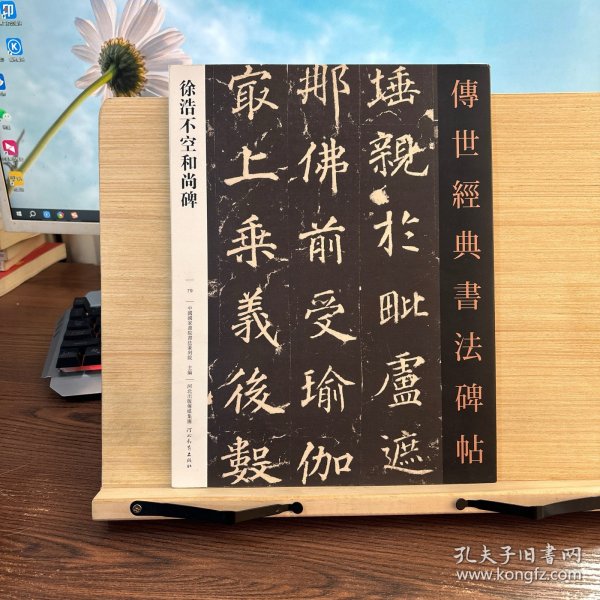 傳世經典書法碑帖
埵親於毗盧遮
那佛前受瑜伽
最上乘義後數
徐浩不空和尚碑
70
中國國家畫院書法篆刻院 主編
河北出版傳媒集團 河北教育出版社
孔夫子旧书网
www.kongfz.com